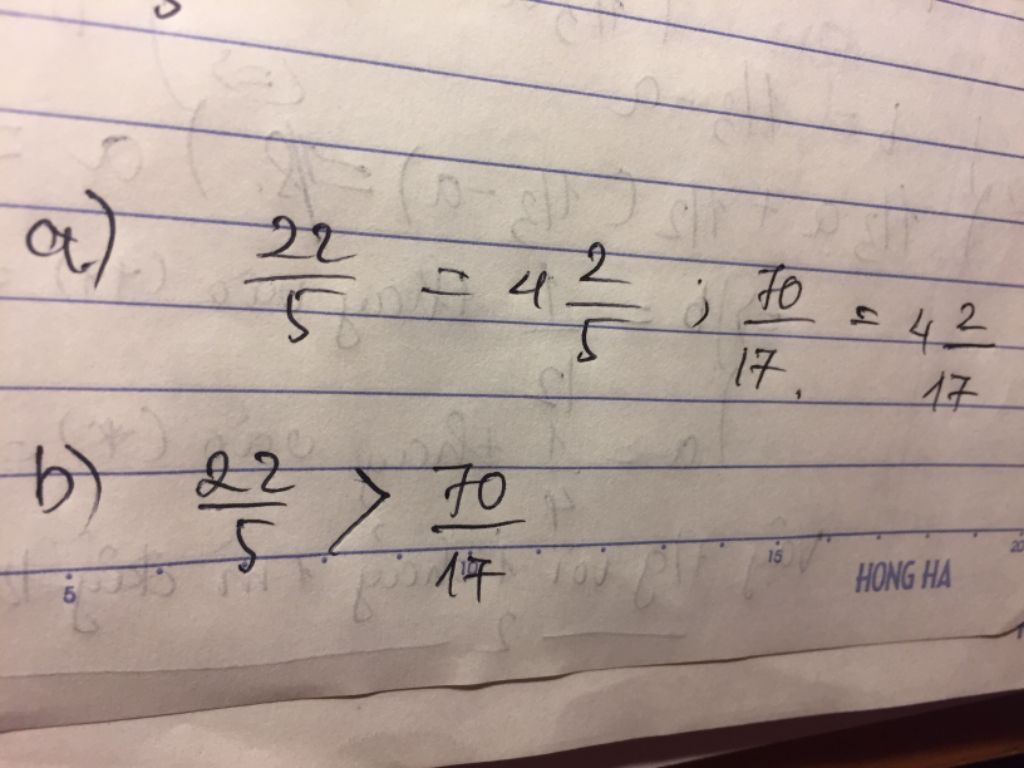 a) 22/5 = 4 2/5 ; 70/17. = 4 2/17
b) 22/5 > 70/17
5 10 15 20
HONG HA